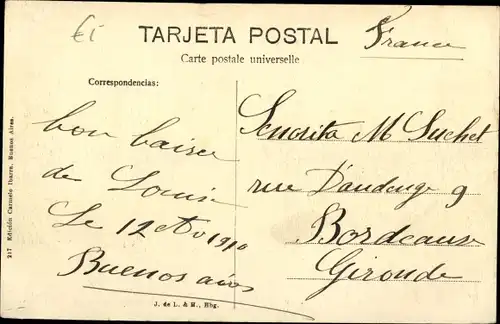 €i
TARJETA POSTAL
France
Carte postale universelle
Correspondencias:
bon baiser
de Louise
Le 12 Av 1910
Buenos aires
Señorita M Suchet
rue Dandenge 9
Bordeaux
Gironde
217 Edición Carmelo Ibarra, Buenos Aires.
J. de L. & H., Hbg.